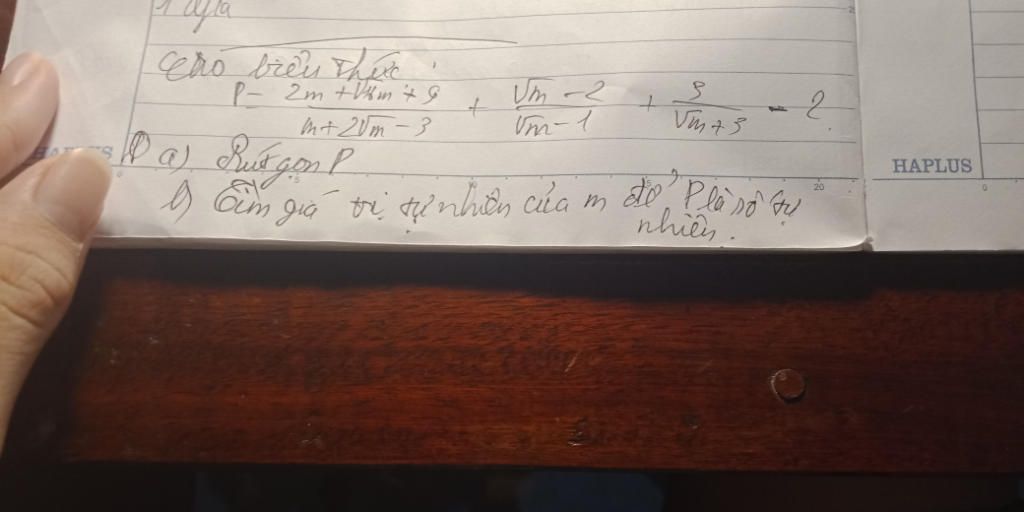 Cho biểu thức
P = \frac{2m + \sqrt{8m} + 9}{m + 2\sqrt{m} - 3} + \frac{\sqrt{m} - 2}{\sqrt{m} - 1} + \frac{3}{\sqrt{m} + 3} - 2.
a) Rút gọn P
HAPLUS
b) Tìm giá trị tự nhiên của m để P là số tự
nhiên.